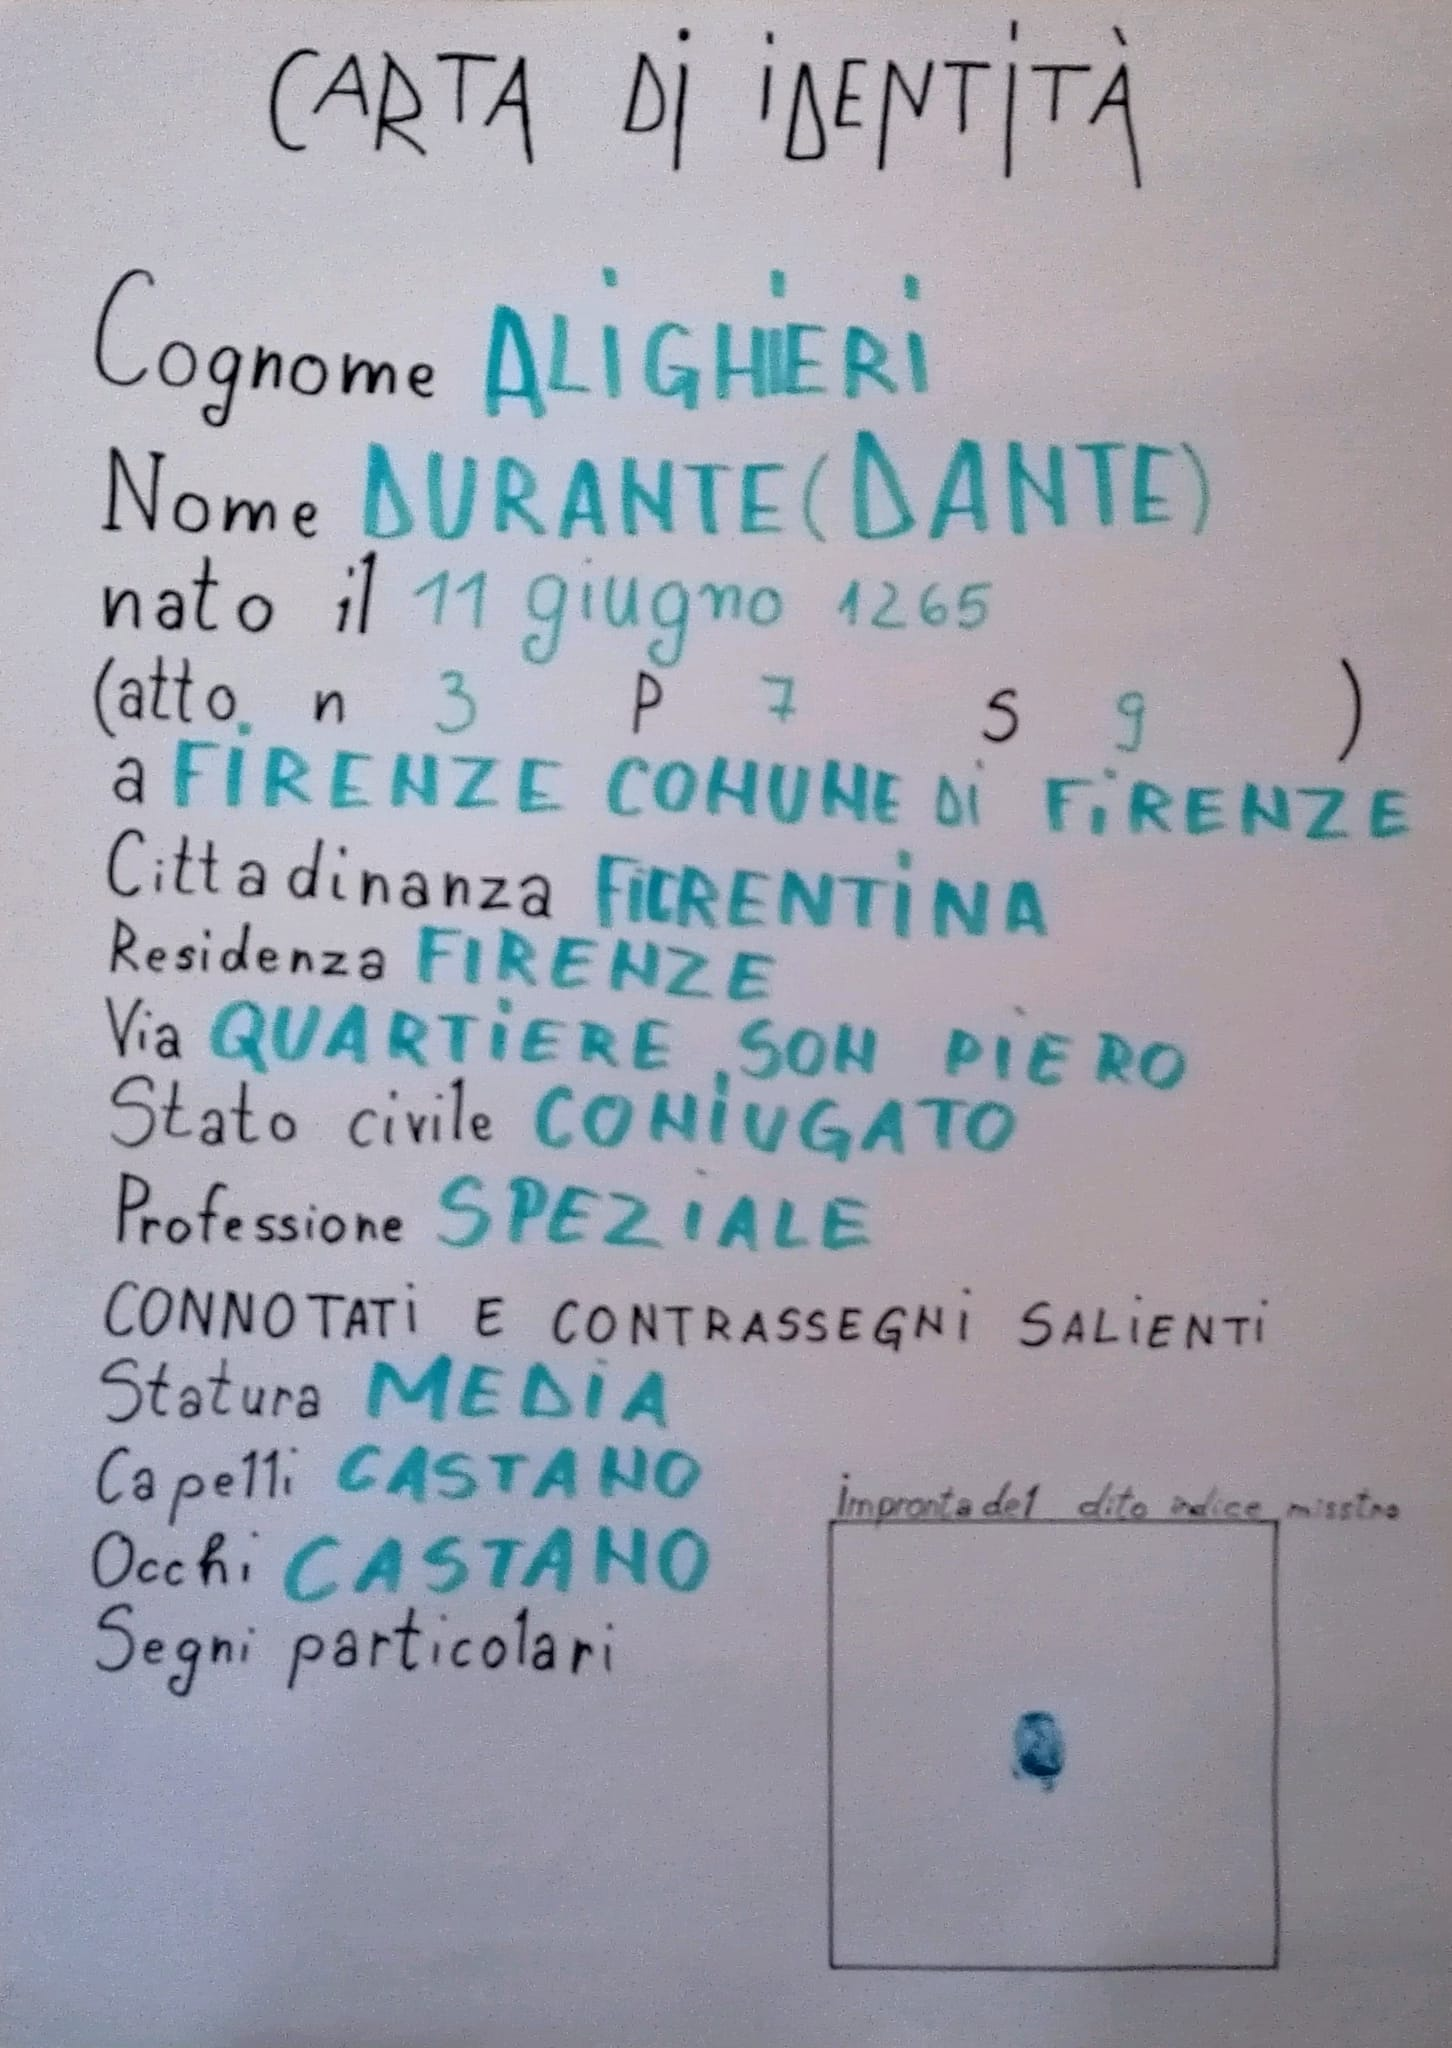 CARTA DI IDENTITÀ
Cognome ALIGHIERI
Nome DURANTE (DANTE)
nato il 11 giugno 1265
(atto n 3 P 7 S 9 )
a FIRENZE COMUNE DI FIRENZE
Cittadinanza FIORENTINA
Residenza FIRENZE
Via QUARTIERE, SON PIERO
Stato civile CONIUGATO
Professione SPEZIALE
CONNOTATI E CONTRASSEGNI SALIENTI
Statura MEDIA
Capelli CASTANO
Occhi CASTANO
Segni particolari
Impronta del dito indice